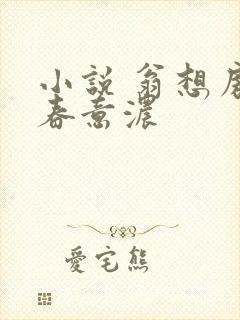 小說 翁想房
春意濃
愛宅熊